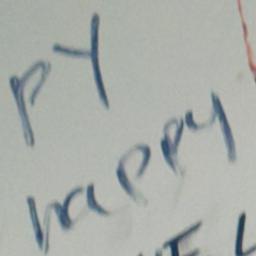 PY
happy